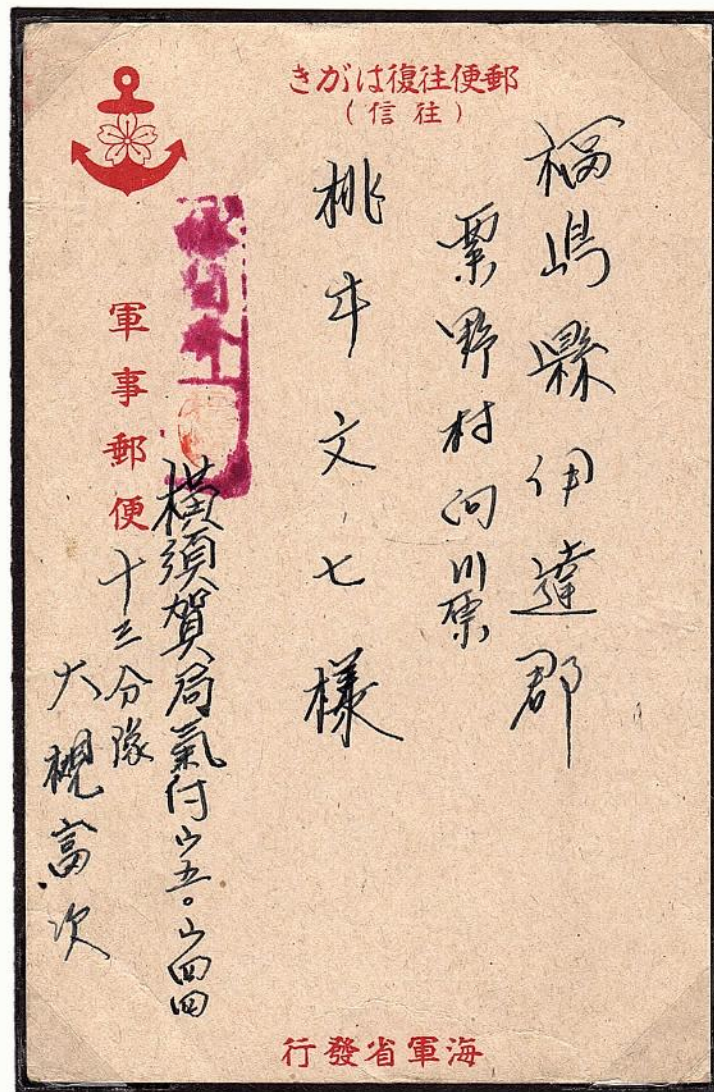 郵便往復はがき
(往信)
福嶋縣伊達郡
粟野村向川原
桃井文七様
軍事郵便
横須賀局氣付ウ五〇ウ四四
十三分隊
大槻富次
海軍省發行